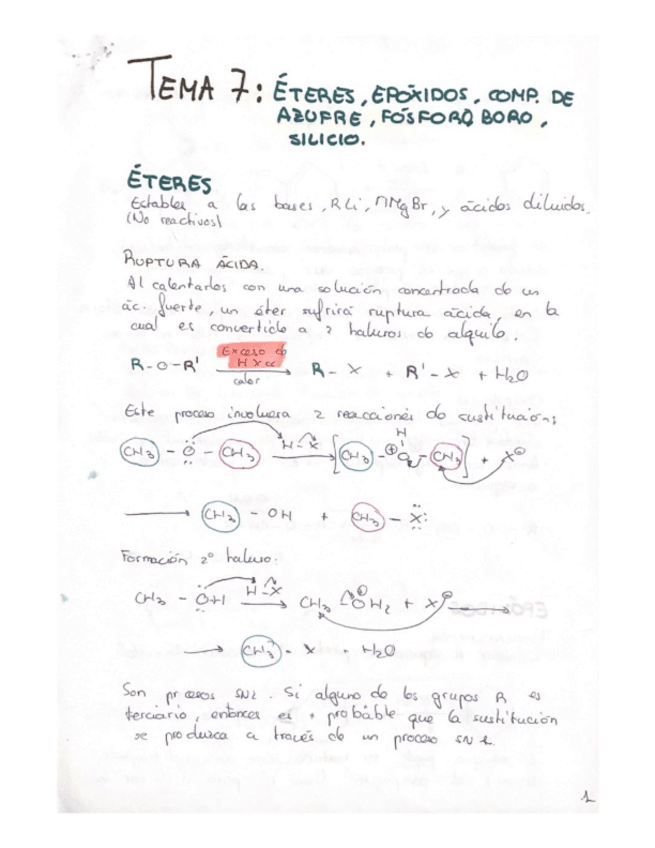 TEMA 7: ÉTERES, EPÓXIDOS, COMP. DE
AZUFRE, FÓSFORO, BORO,
SILICIO.
ÉTERES
Estables a las bases, RLi, RMgBr, y ácidos diluidos.
(No reactivos)
RUPTURA ÁCIDA.
Al calentarlos con una solución concentrada de un
ác. fuerte, un éter sufrirá ruptura ácida, en la
cual es convertido a 2 haluros de alquilo.
Exceso de
HX cc
R-O-R' → R-X + R'-X + H2O
calor
Este proceso involucra 2 reacciones de sustitución:
CH3 - O - CH3 H-X → [CH3 - O - CH3] + X⊖
H
⊕
→ CH3 - OH + CH3 - X:
Formación 2º haluro:
CH3 - OH H-X → CH3 - OH2 + X⊖ →
⊕
→ CH3 - X + H2O
Son procesos SN2. Si alguno de los grupos R es
terciario, entonces es + probable que la sustitución
se produzca a través de un proceso SN1.
1